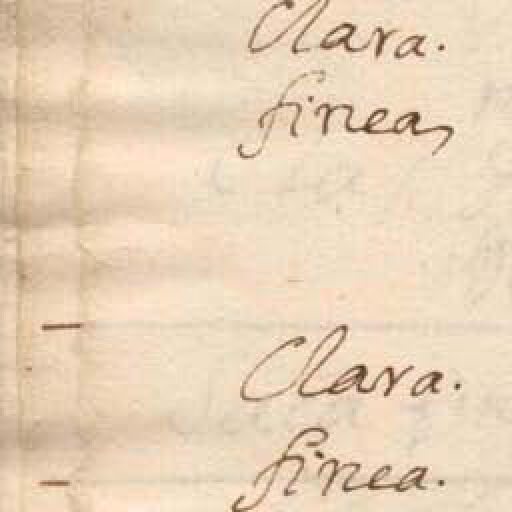 Clara.
finea,
Clara.
finea.